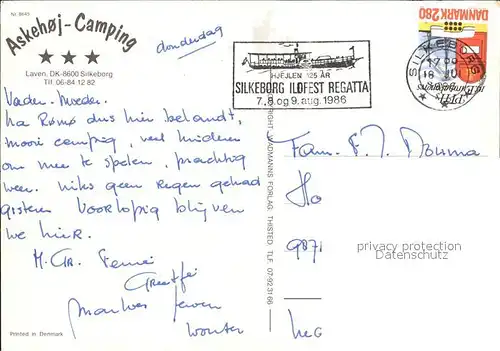 Nr. 8645
Askehøj-Camping
Laven, DK-8600 Silkeborg
Tlf. 06-84 12 82
donderdag
HJEJLEN 125 ÅR
SILKEBORG ILDFEST REGATTA
7., 8. og 9. aug. 1986
DANMARK 280
SILKEBORG
18
Vader. Moeder.
Na Rømø dus hier belandt,
mooi camping, veel kinderen
om mee te spelen, prachtig
weer. niks geen regen gehad
gisteren Voorlopig blijven
we hier.
M. Gr.
Greetje
Wouter
Fam.
9871
COPYRIGHT WADMANNS FORLAG THISTED TLF. 07-92 31 66
Printed in Denmark
privacy protection
Datenschutz